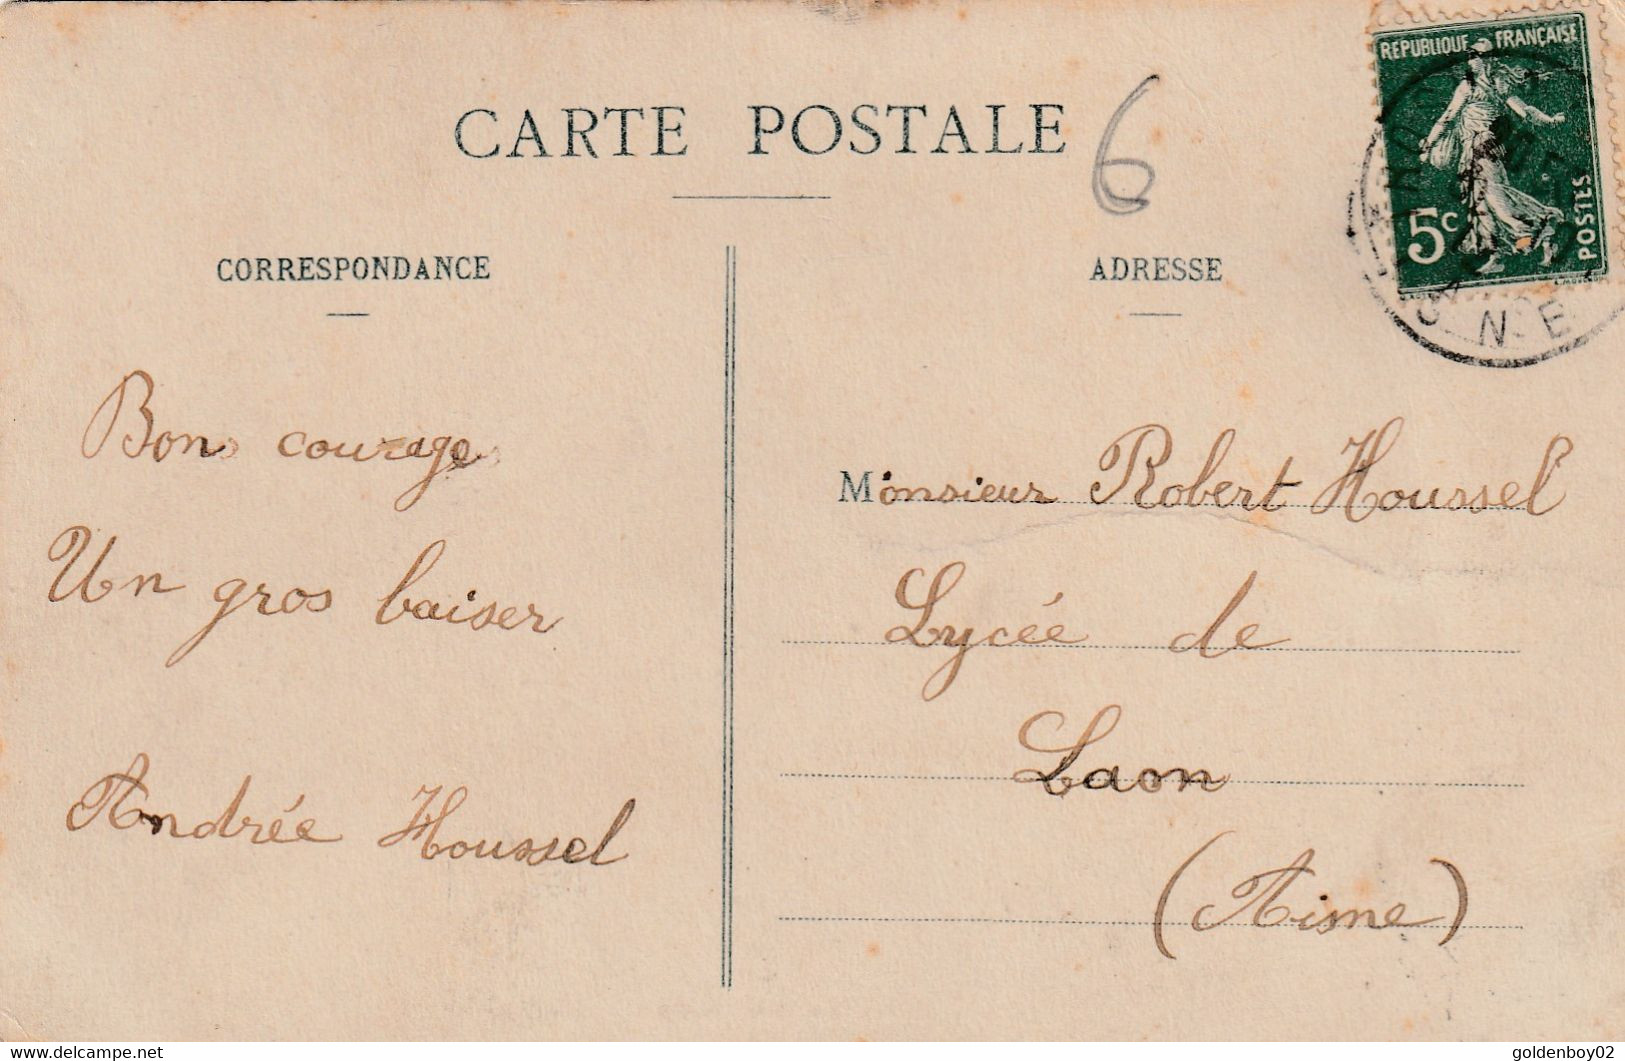 CARTE POSTALE
6
CORRESPONDANCE
ADRESSE
REPUBLIQUE FRANÇAISE
5c
POSTES
Bon courage
Un gros baiser
Andrée Houssel
Monsieur Robert Houssel
Lycée de
Laon
(Aisne)
website : www.delcampe.net
goldenboy02